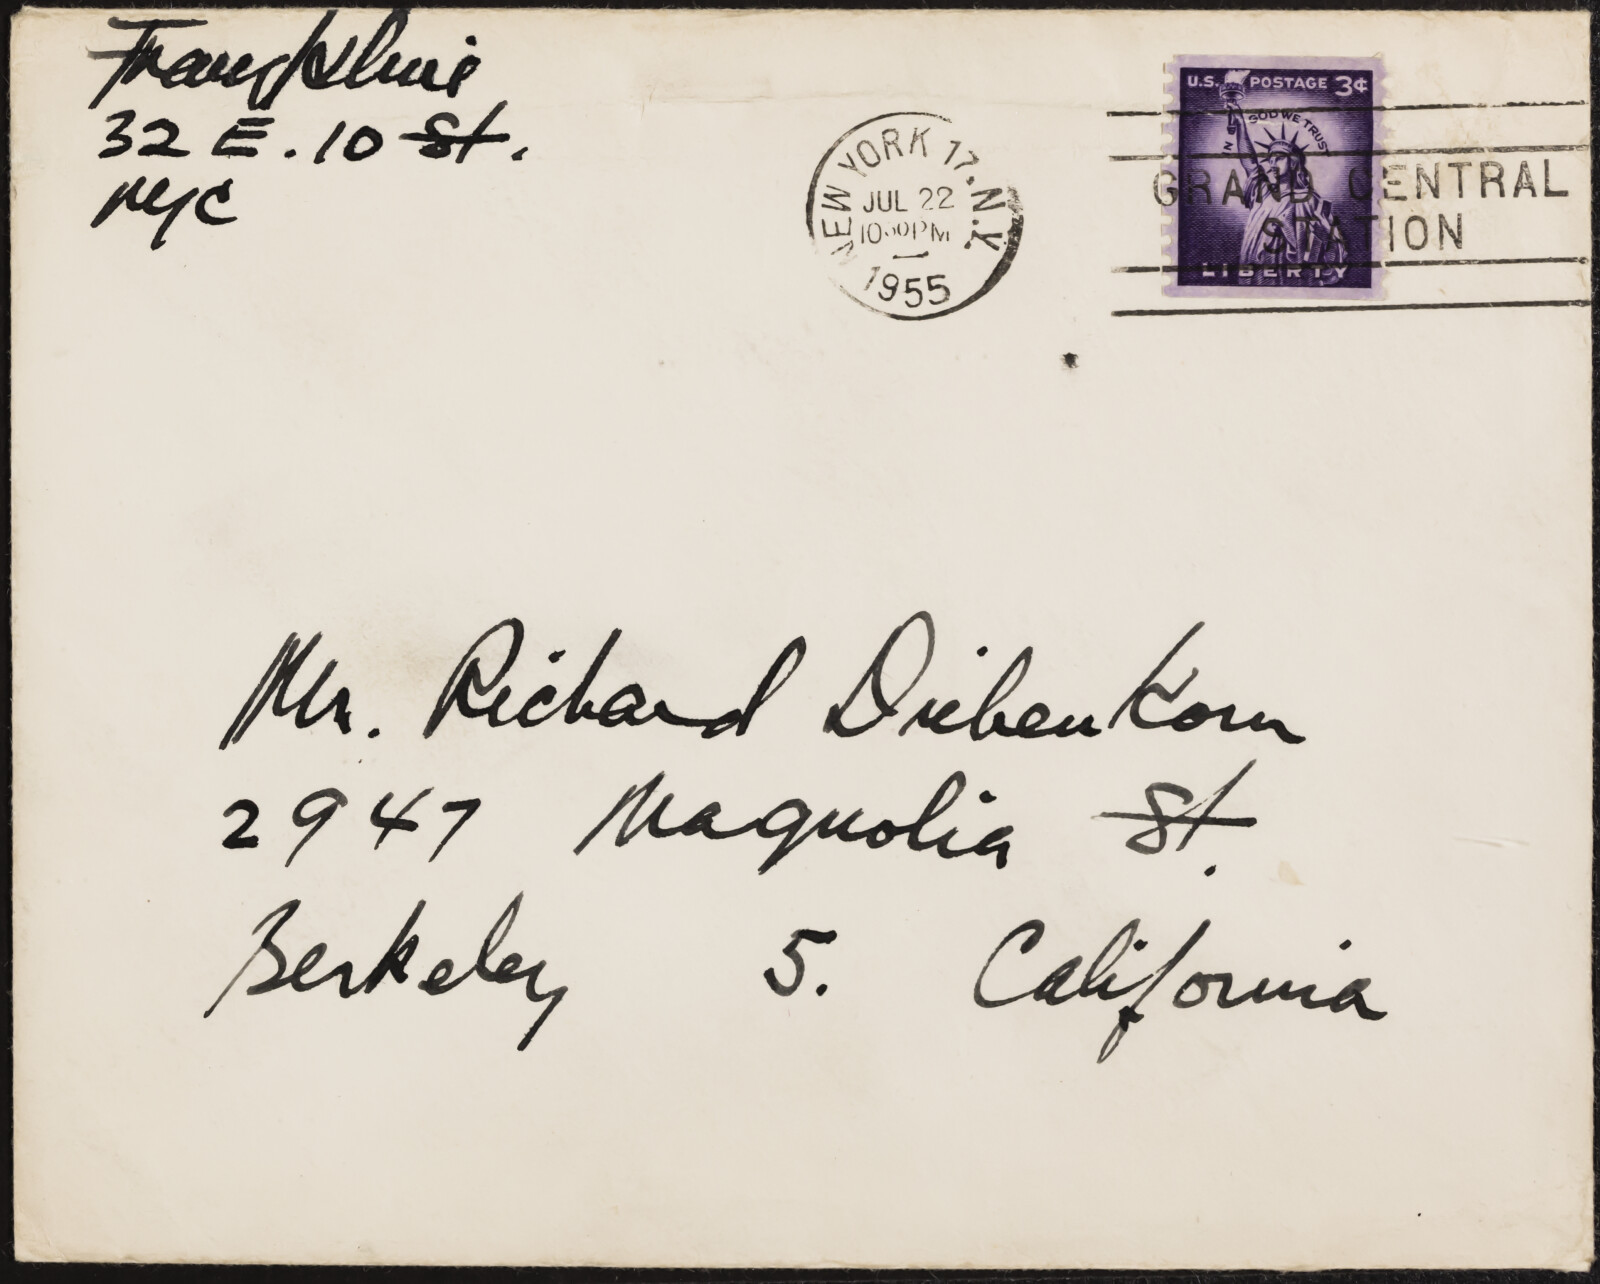 Franz Kline
32 E. 10 St.
NYC
NEW YORK 17. N.Y.
JUL 22
10 30 PM
1955
U.S. POSTAGE 3¢
IN GOD WE TRUST
LIBERTY
GRAND CENTRAL
STATION
Mr. Richard Diebenkorn
2947 Magnolia St.
Berkeley 5. California